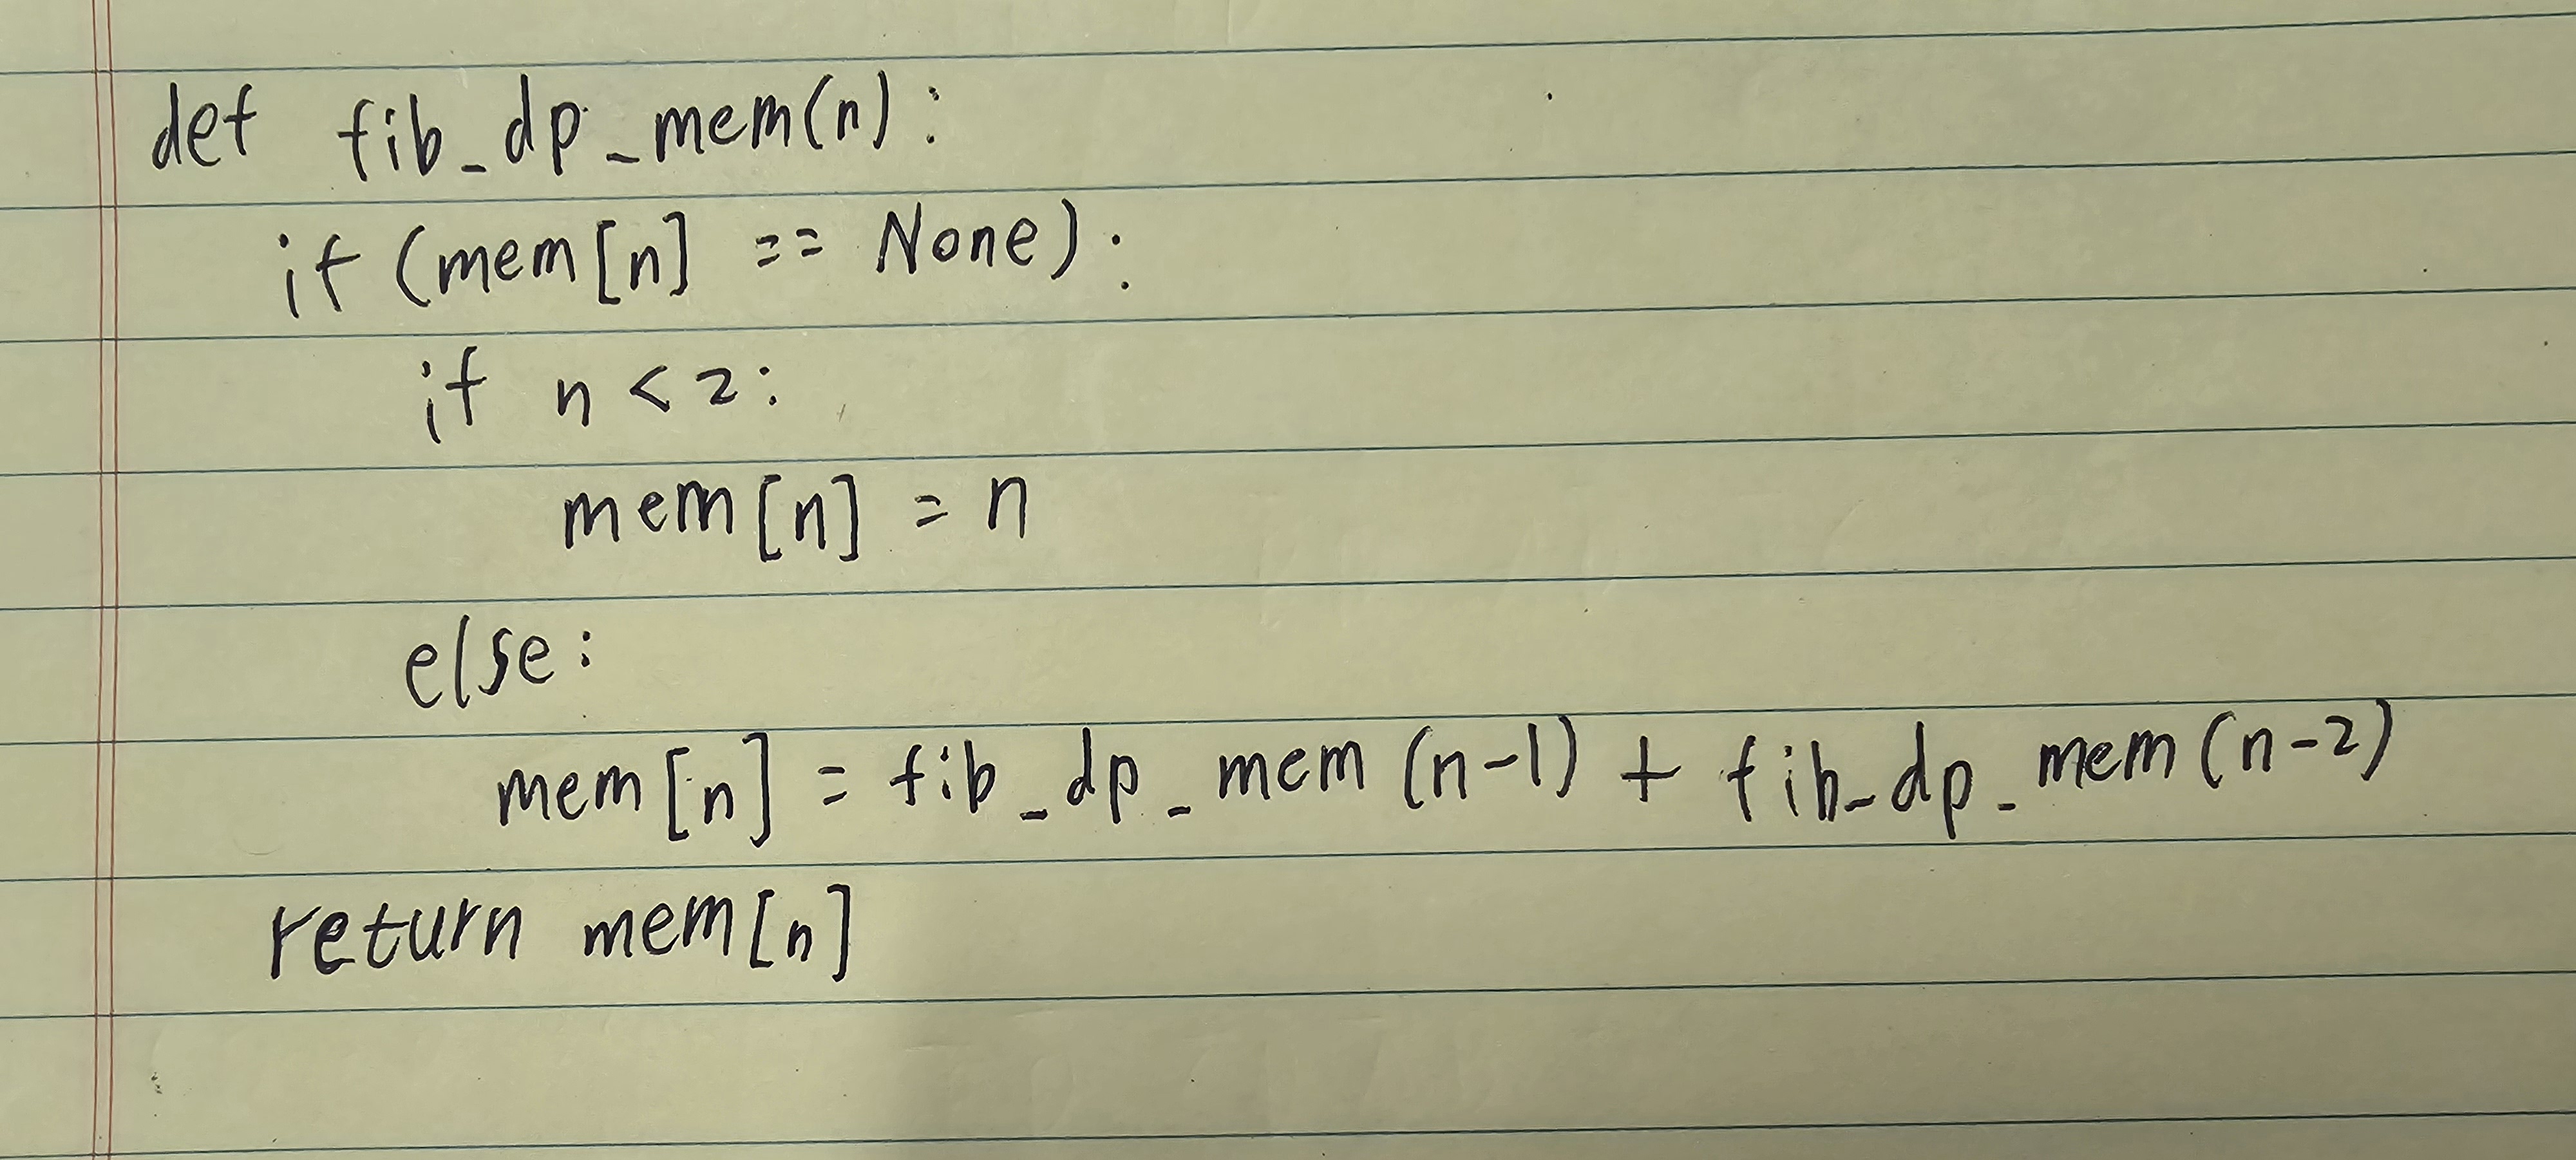 def fib_dp_mem(n):
if (mem[n] == None):
if n < 2:
mem[n] = n
else:
mem[n] = fib_dp_mem(n-1) + fib_dp_mem(n-2)
return mem[n]